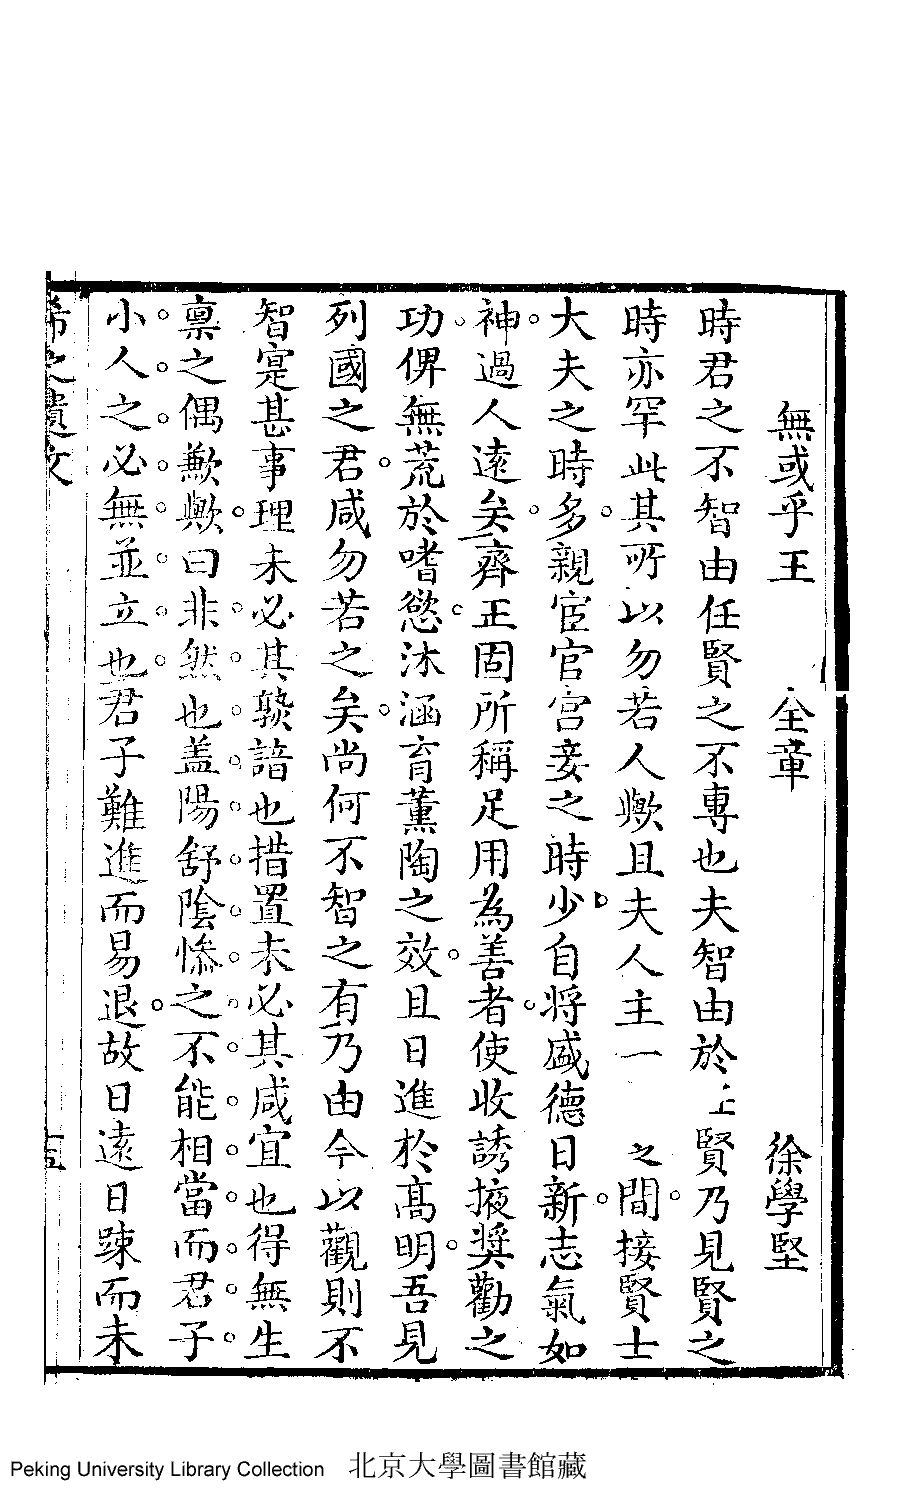 無或乎王 全章 徐學堅
時君之不智由任賢之不專也夫智由於賢乃見賢之
時亦罕此其所以勿若人歟且夫人主一之間接賢士
大夫之時多親宦官宮妾之時少自將盛德日新志氣如
神過人遠矣齊王固所稱足用為善者使收誘掖奨勸之
功俾無荒於嗜慾沐涵育薰陶之效且日進於髙明吾見
列國之君咸勿若之矣尚何不智之有乃由今以觀則不
智寔甚事理未必其諳也措置未必其咸宜也得無生
禀之偶歉歟曰非然也盖陽舒陰慘之不能相當而君子
小人之必無並立也君子難進而易退故日遠日踈而未
希之遺文
Peking University Library Collection 北京大學圖書館藏